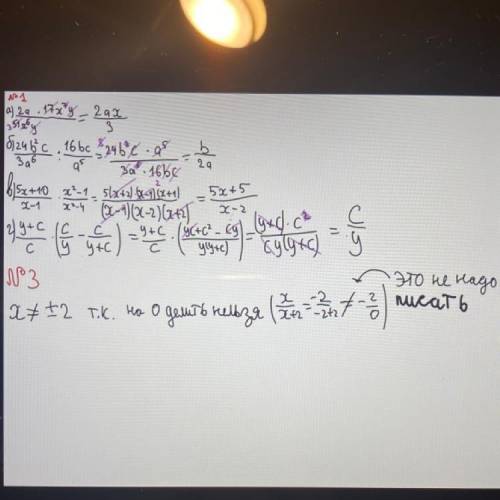 №1
а) (2a · 17x⁷y)/(51x⁶y) = 2ax/3
б) 24b²c/3a⁶ : 16bc/a⁵ = (24b²c · a⁵)/(3a⁶ · 16bc) = b/2a
в) (5x+10)/(x-1) · (x²-1)/(x²-4) = (5(x+2)(x-1)(x+1))/((x-1)(x-2)(x+2)) = (5x+5)/(x-2)
г) (y+c)/c · (c/y - c/(y+c)) = (y+c)/c · ((yc+c² - cy)/(y(y+c))) = ((y+c) · c²)/(cy(y+c)) = c/y
№3
x ≠ ±2 т.к. на 0 делить нельзя (x/(x+2) = -2/(-2+2) ≠ -2/0) это не надо писать